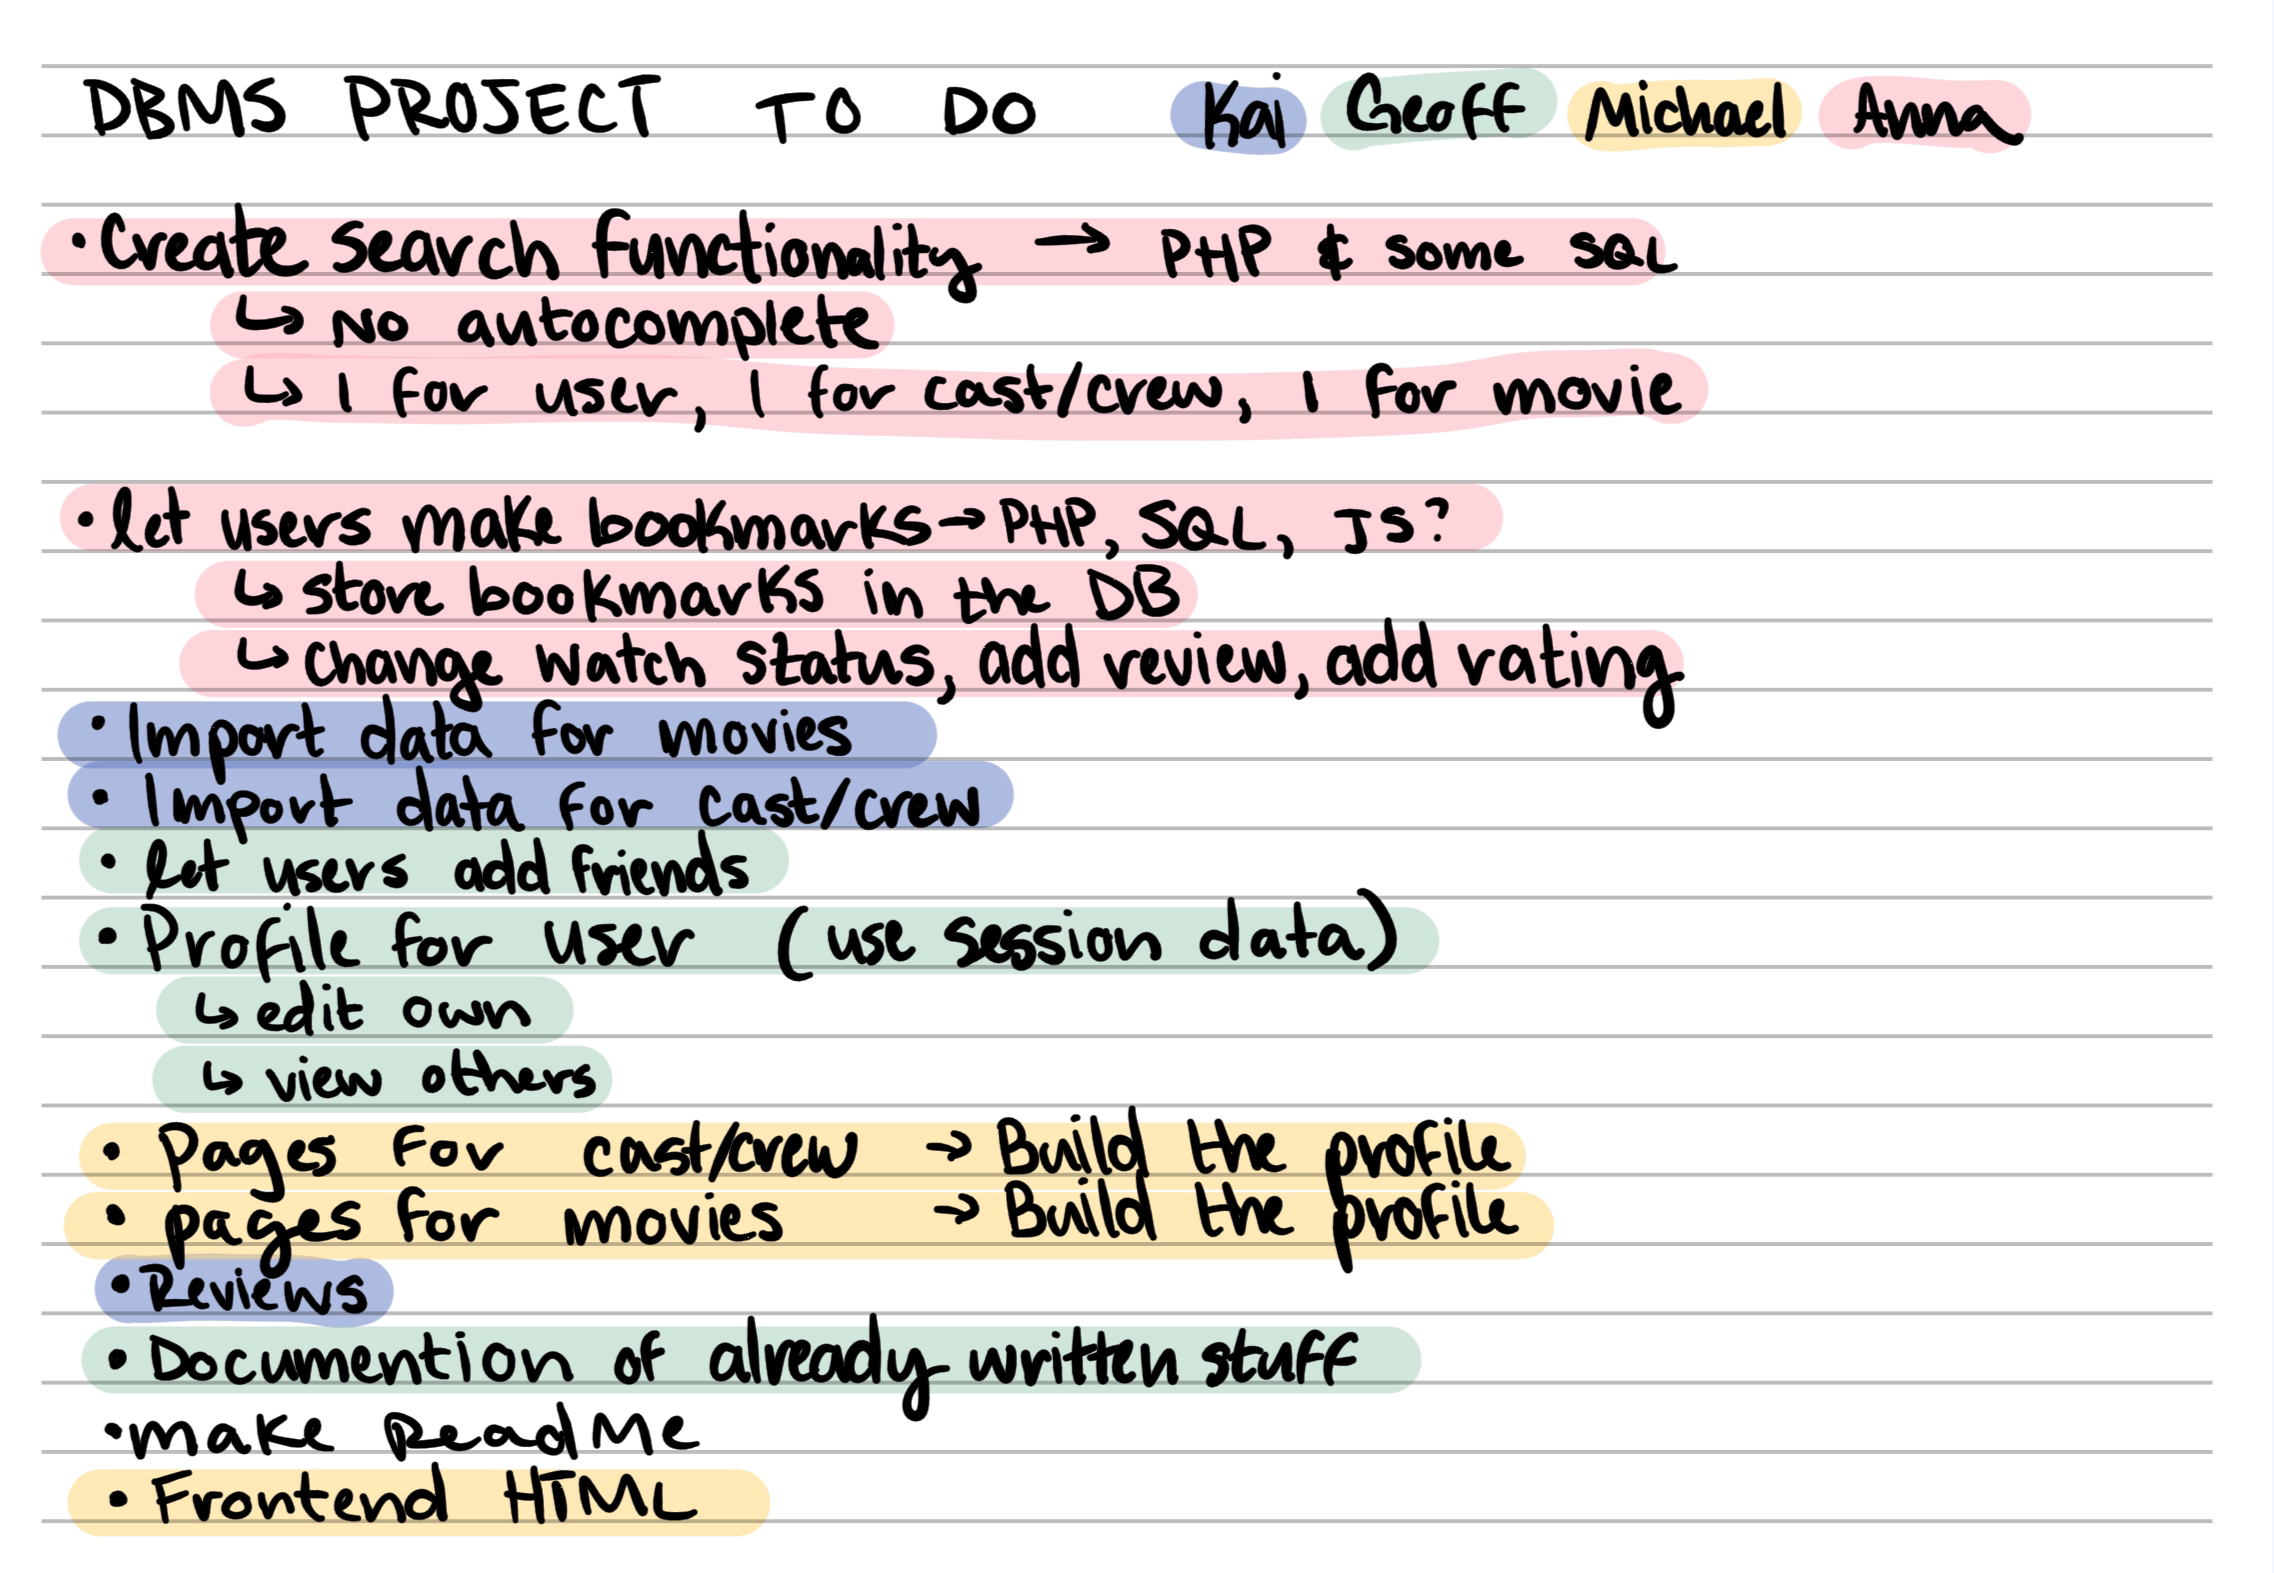 DBMS PROJECT TO DO Kai Geoff Michael Anna
• Create search functionality → PHP & some SQL
↳ No autocomplete
↳ 1 for user, 1 for cast/crew, 1 for movie
• let users make bookmarks → PHP, SQL, JS?
↳ store bookmarks in the DB
↳ change watch status, add review, add rating
• Import data for movies
• Import data for cast/crew
• let users add friends
• Profile for user (use session data)
↳ edit own
↳ view others
• Pages for cast/crew → Build the profile
• pages for movies → Build the profile
• Reviews
• Documention of already written stuff
• make ReadMe
• Frontend HTML